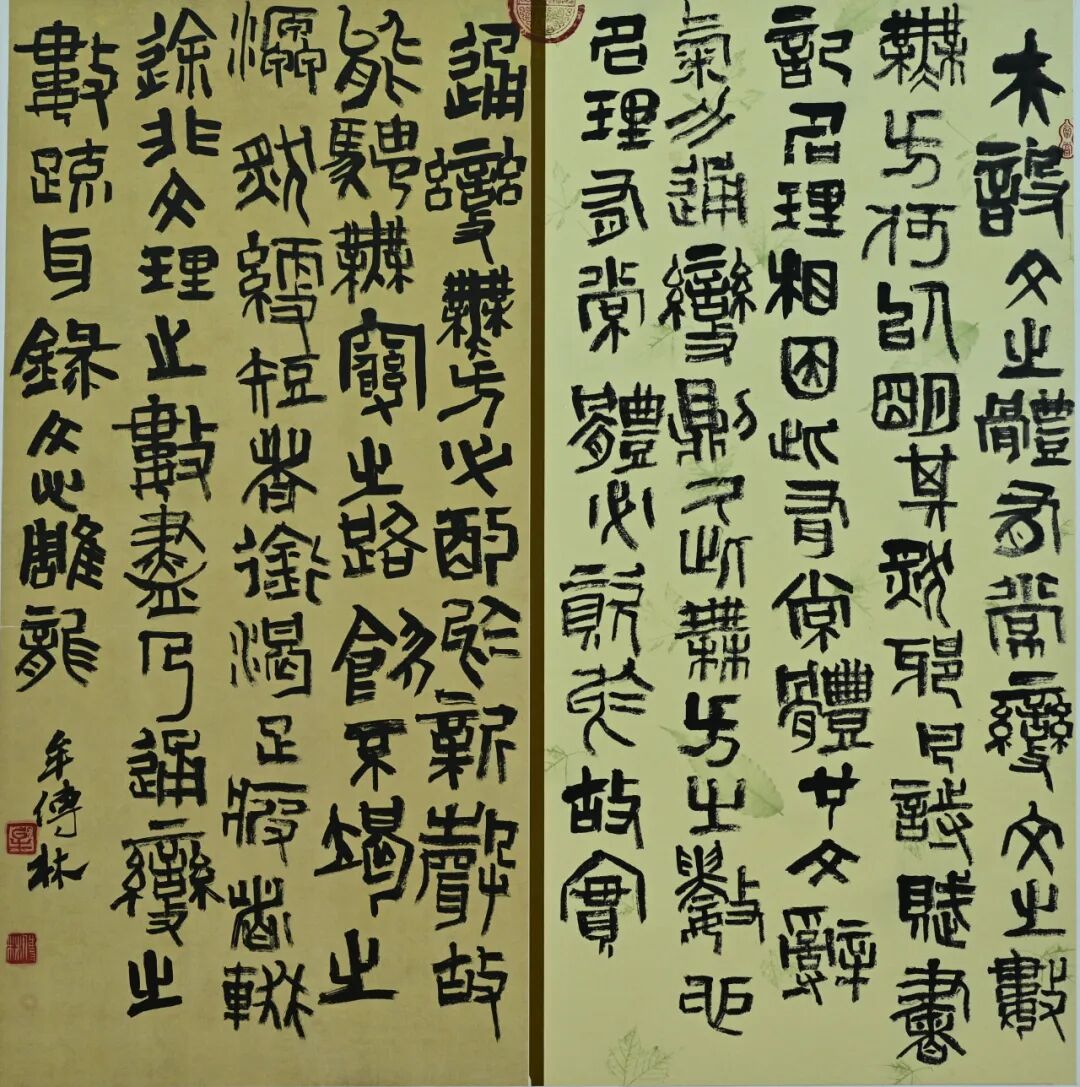 夫設文之體有常變文之數
無方何以明其然耶凡詩賦書
記名理相因此有常體也文辭
氣力通變則久此無方之數也
名理有常體必資於故實
通變無方必酌於新聲故
能騁無窮之路飲不竭之
源然綆短者銜渴足疲者輟
途非文理之數盡乃通變之
數疏耳錄文心雕龍
牟傳林